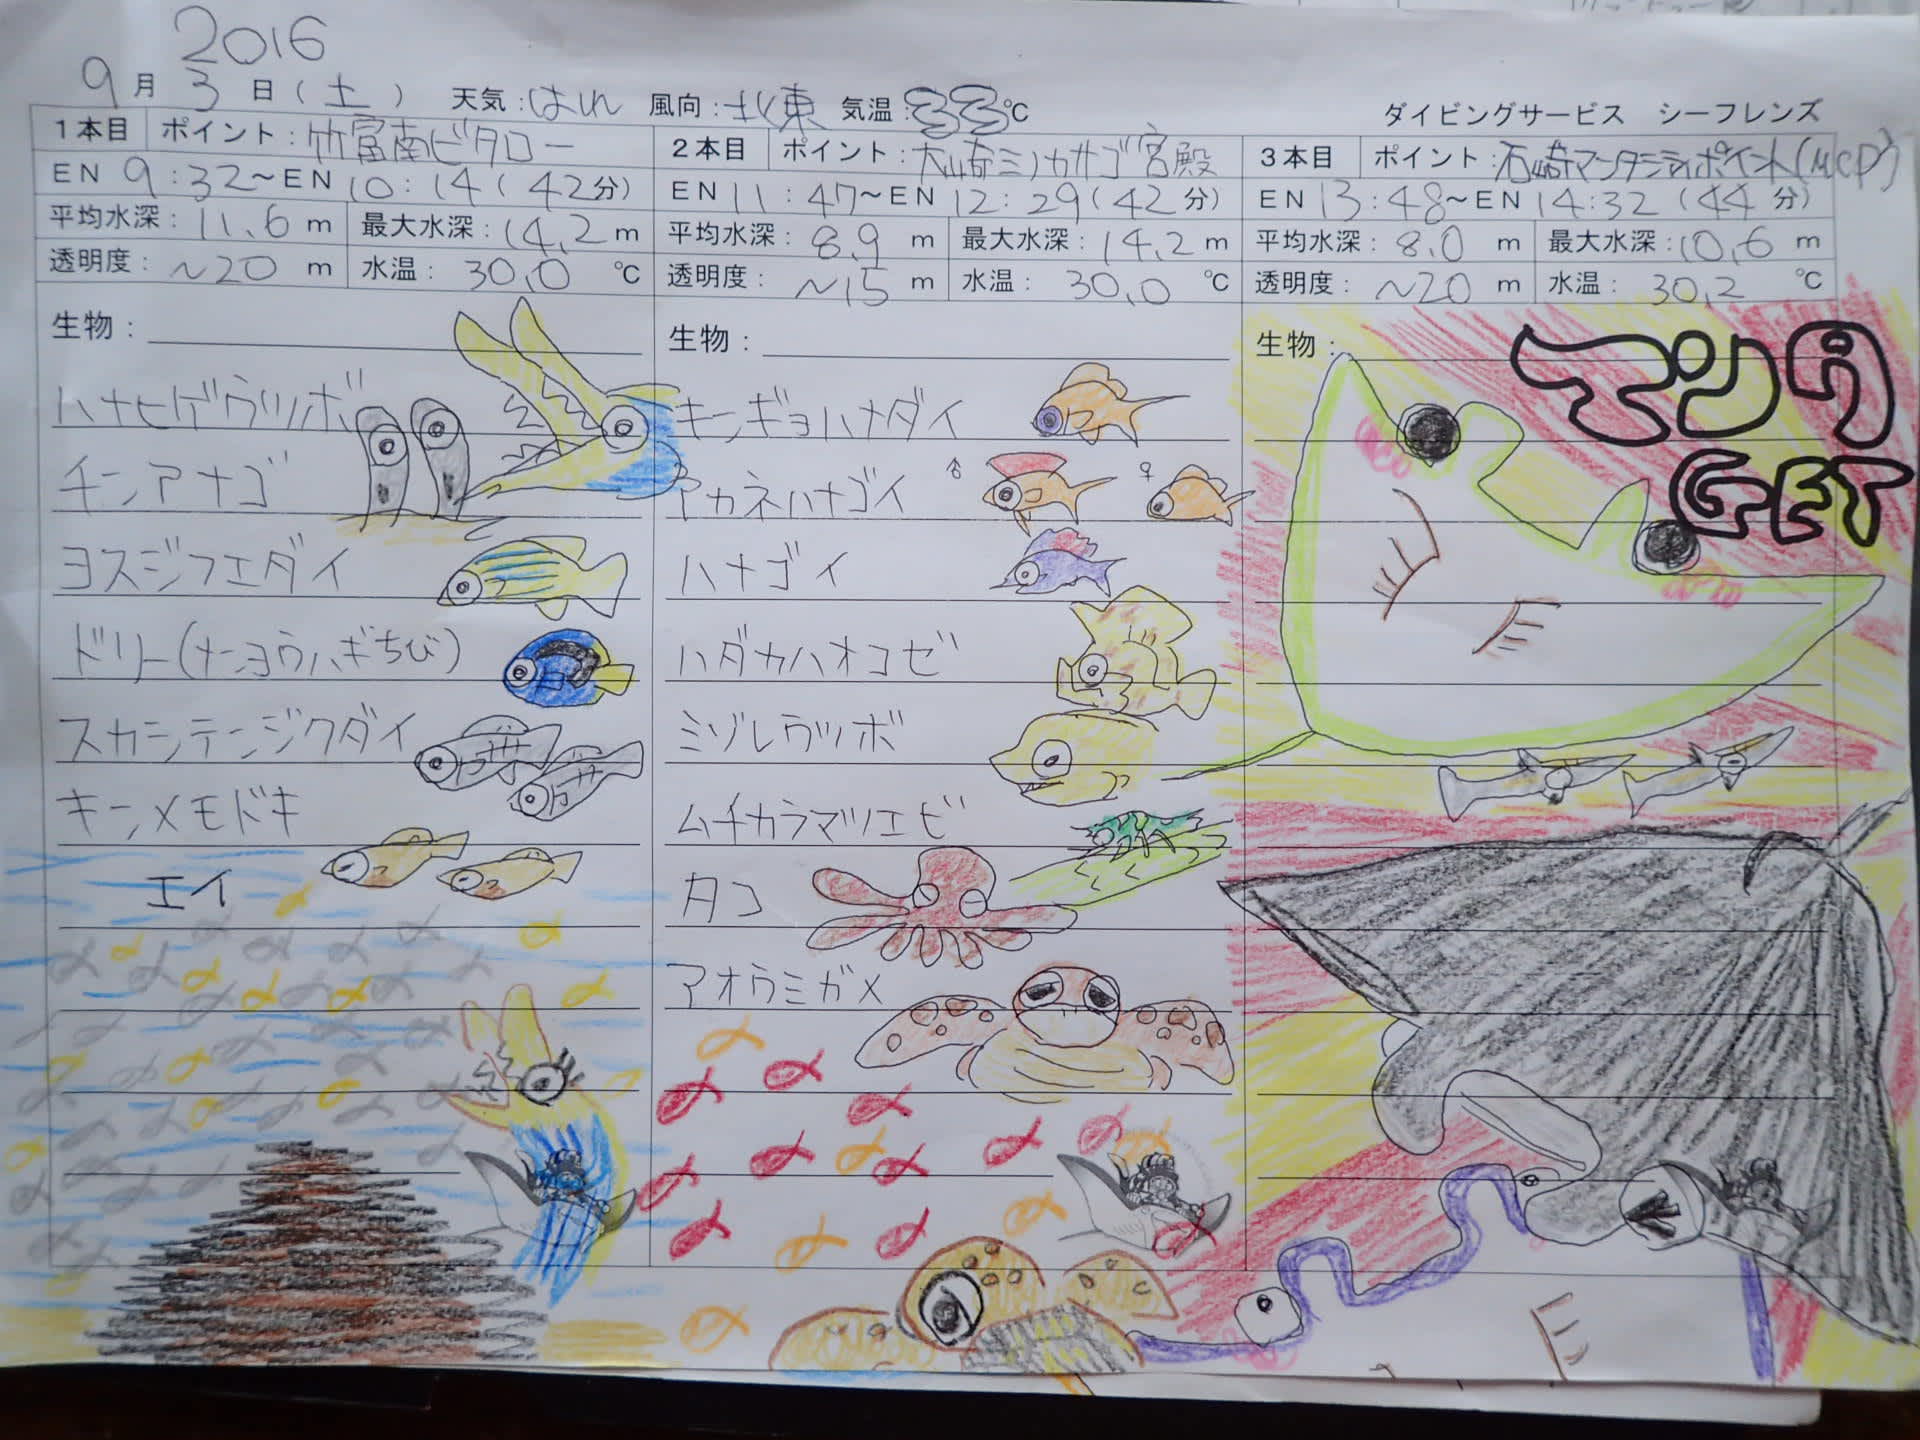 2016
9月3日(土) 天気:はれ 風向:北東 気温:33℃
ダイビングサービス シーフレンズ
1本目 ポイント:竹富南ビタロー
EN 9:32~EN 10:14(42分)
平均水深:11.6m 最大水深:14.2m
透明度:~20m 水温:30.0℃
生物:
ハナヒゲウツボ
チンアナゴ
ヨスジフエダイ
ドリー(ナンヨウハギちび)
スカシテンジクダイ
キンメモドキ
エイ
2本目 ポイント:大崎ミノカサゴ宮殿
EN 11:47~EN 12:29(42分)
平均水深:8.9m 最大水深:14.2m
透明度:~15m 水温:30.0℃
生物:
キンギョハナダイ
アカネハナゴイ ♂ ♀
ハナゴイ
ハダカハオコゼ
ミゾレウツボ
ムチカラマツエビ
タコ
アオウミガメ
3本目 ポイント:石崎マンタシティポイント(MCP)
EN 13:48~EN 14:32(44分)
平均水深:8.0m 最大水深:10.6m
透明度:~20m 水温:30.2℃
生物:
マンタ
GET